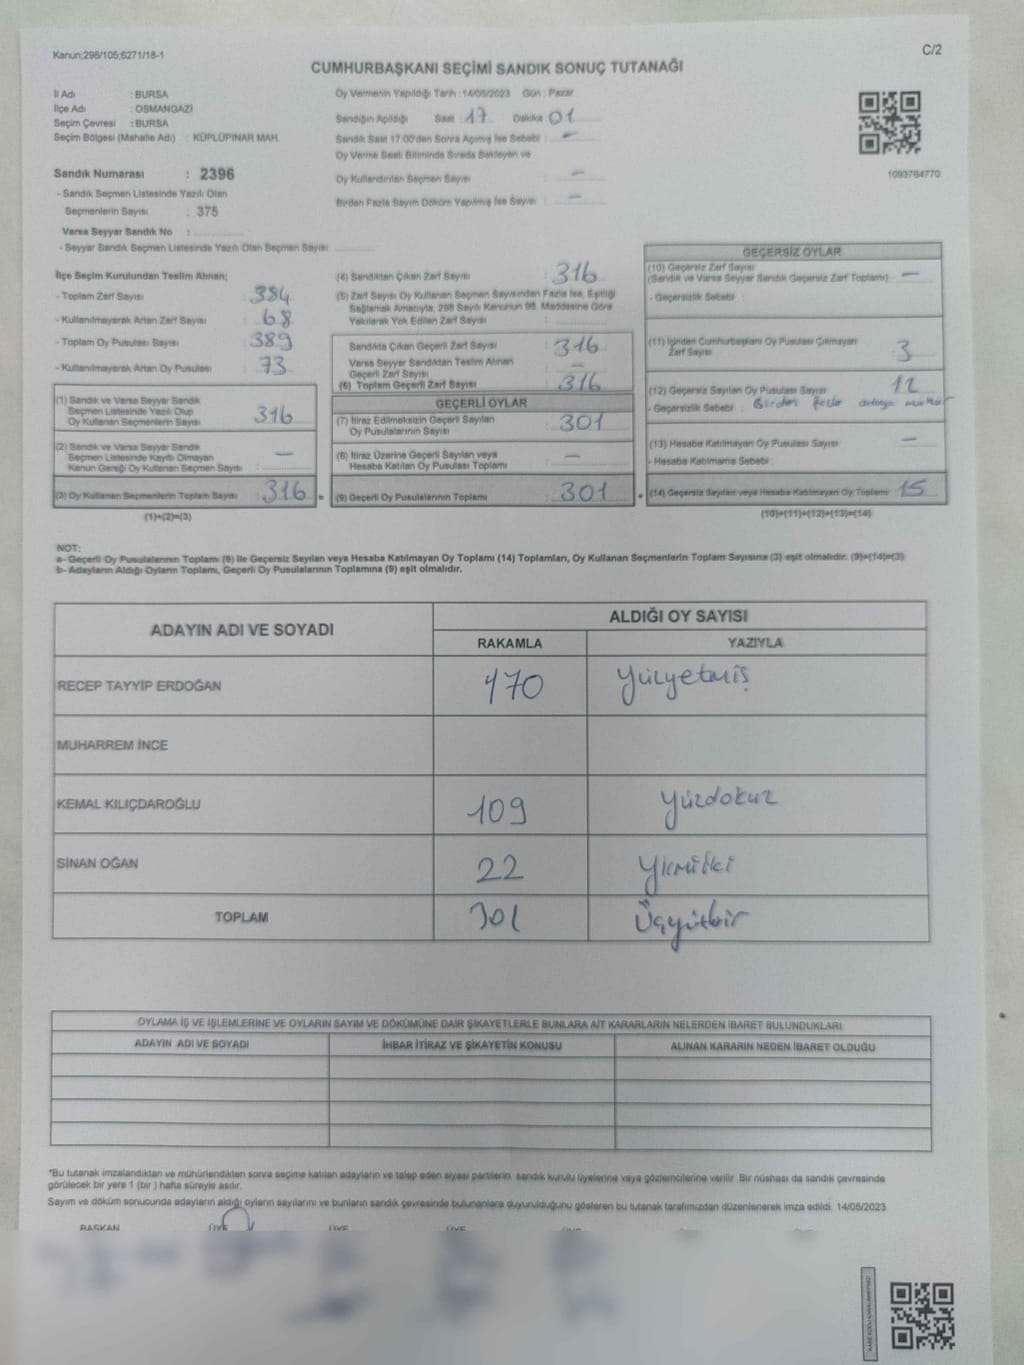 Kanun:298/105;6271/18-1
C/2
CUMHURBAŞKANI SEÇİMİ SANDIK SONUÇ TUTANAĞI
İl Adı : BURSA
İlçe Adı : OSMANGAZİ
Seçim Çevresi : BURSA
Seçim Bölgesi (Mahalle Adı) : KÜPLÜPINAR MAH.
Sandık Numarası : 2396
- Sandık Seçmen Listesinde Yazılı Olan
Seçmenlerin Sayısı : 375
Varsa Seyyar Sandık No :
- Seyyar Sandık Seçmen Listesinde Yazılı Olan Seçmen Sayısı
Oy Vermenin Yapıldığı Tarih : 14/05/2023 Gün : Pazar
Sandığın Açıldığı Saat 17 Dakika 01
Sandık Saat 17:00'den Sonra Açılmış İse Sebebi : -
Oy Verme Saati Bitiminde Sırada Bekleyen ve
Oy Kullandırılan Seçmen Sayısı : -
Birden Fazla Sayım Döküm Yapılmış İse Sayısı : -
1093764770
İlçe Seçim Kurulundan Teslim Alınan;
- Toplam Zarf Sayısı : 384
- Kullanılmayarak Artan Zarf Sayısı : 68
- Toplam Oy Pusulası Sayısı : 389
- Kullanılmayarak Artan Oy Pusulası : 73
(1) Sandık ve Varsa Seyyar Sandık
Seçmen Listesinde Yazılı Olup
Oy Kullanan Seçmenlerin Sayısı : 316
(2) Sandık ve Varsa Seyyar Sandık
Seçmen Listesinde Kayıtlı Olmayan
Kanun Gereği Oy Kullanan Seçmen Sayısı : -
(3) Oy Kullanan Seçmenlerin Toplam Sayısı : 316 =
(1)+(2)=(3)
(4) Sandıktan Çıkan Zarf Sayısı : 316
(5) Zarf Sayısı Oy Kullanan Seçmen Sayısından Fazla İse, Eşitliği
Sağlamak Amacıyla, 298 Sayılı Kanunun 98. Maddesine Göre
Yakılarak Yok Edilen Zarf Sayısı :
Sandıkta Çıkan Geçerli Zarf Sayısı : 316
Varsa Seyyar Sandıktan Teslim Alınan
Geçerli Zarf Sayısı : -
(6) Toplam Geçerli Zarf Sayısı : 316
GEÇERLİ OYLAR
(7) İtiraz Edilmeksizin Geçerli Sayılan
Oy Pusulalarının Sayısı : 301
(8) İtiraz Üzerine Geçerli Sayılan veya
Hesaba Katılan Oy Pusulası Toplamı : -
(9) Geçerli Oy Pusulalarının Toplamı : 301 +
GEÇERSİZ OYLAR
(10) Geçersiz Zarf Sayısı
(Sandık ve Varsa Seyyar Sandık Geçersiz Zarf Toplamı) : -
- Geçersizlik Sebebi :
(11) İçinden Cumhurbaşkanı Oy Pusulası Çıkmayan
Zarf Sayısı : 3
(12) Geçersiz Sayılan Oy Pusulası Sayısı : 12
- Geçersizlik Sebebi : Birden fazla adaya mühür
(13) Hesaba Katılmayan Oy Pusulası Sayısı : -
- Hesaba Katılmama Sebebi :
(14) Geçersiz Sayılan veya Hesaba Katılmayan Oy Toplamı : 15
(10)+(11)+(12)+(13)=(14)
NOT:
a- Geçerli Oy Pusulalarının Toplamı (9) ile Geçersiz Sayılan veya Hesaba Katılmayan Oy Toplamı (14) Toplamları, Oy Kullanan Seçmenlerin Toplam Sayısına (3) eşit olmalıdır. (9)+(14)=(3)
b- Adayların Aldığı Oyların Toplamı, Geçerli Oy Pusulalarının Toplamına (9) eşit olmalıdır.
ADAYIN ADI VE SOYADI
ALDIĞI OY SAYISI
RAKAMLA YAZIYLA
RECEP TAYYİP ERDOĞAN 170 Yüzyetmiş
MUHARREM İNCE
KEMAL KILIÇDAROĞLU 109 Yüzdokuz
SİNAN OĞAN 22 Yirmiiki
TOPLAM 301 Üçyüzbir
OYLAMA İŞ VE İŞLEMLERİNE VE OYLARIN SAYIM VE DÖKÜMÜNE DAİR ŞİKAYETLERLE BUNLARA AİT KARARLARIN NELERDEN İBARET BULUNDUKLARI
ADAYIN ADI VE SOYADI İHBAR İTİRAZ VE ŞİKAYETİN KONUSU ALINAN KARARIN NEDEN İBARET OLDUĞU
*Bu tutanak imzalandıktan ve mühürlendikten sonra seçime katılan adayların ve talep eden siyasi partilerin sandık kurulu üyelerine veya gözlemcilerine verilir. Bir nüshası da sandık çevresinde
görülecek bir yere 1 (bir ) hafta süreyle asılır.
Sayım ve döküm sonucunda adayların aldığı oyların sayılarını ve bunların sandık çevresinde bulunanlara duyurulduğunu gösteren bu tutanak tarafımızdan düzenlenerek imza edildi. 14/05/2023
BAŞKAN ÜYE ÜYE ÜYE